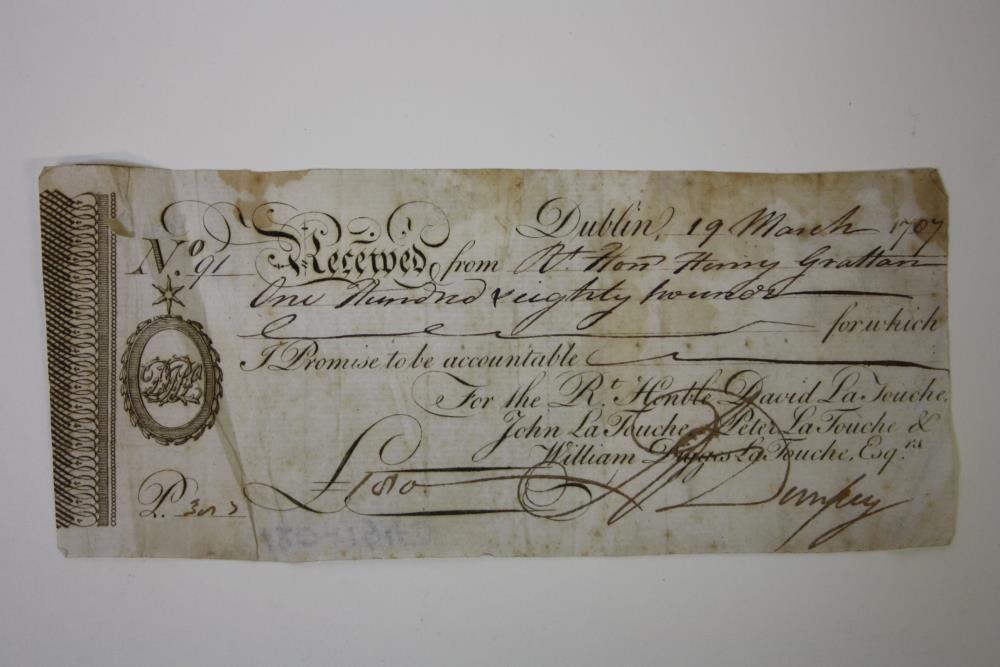 Dublin, 19 March 1787
No. 91 Received from Rt. Honn Henry Grattan
One Hundred & eighty pounds
for which
I Promise to be accountable
For the Rt. Honble David La Touche,
John La Touche, Peter La Touche &
William Digges La Touche, Esqrs.
£180
P. 307
Dempsey